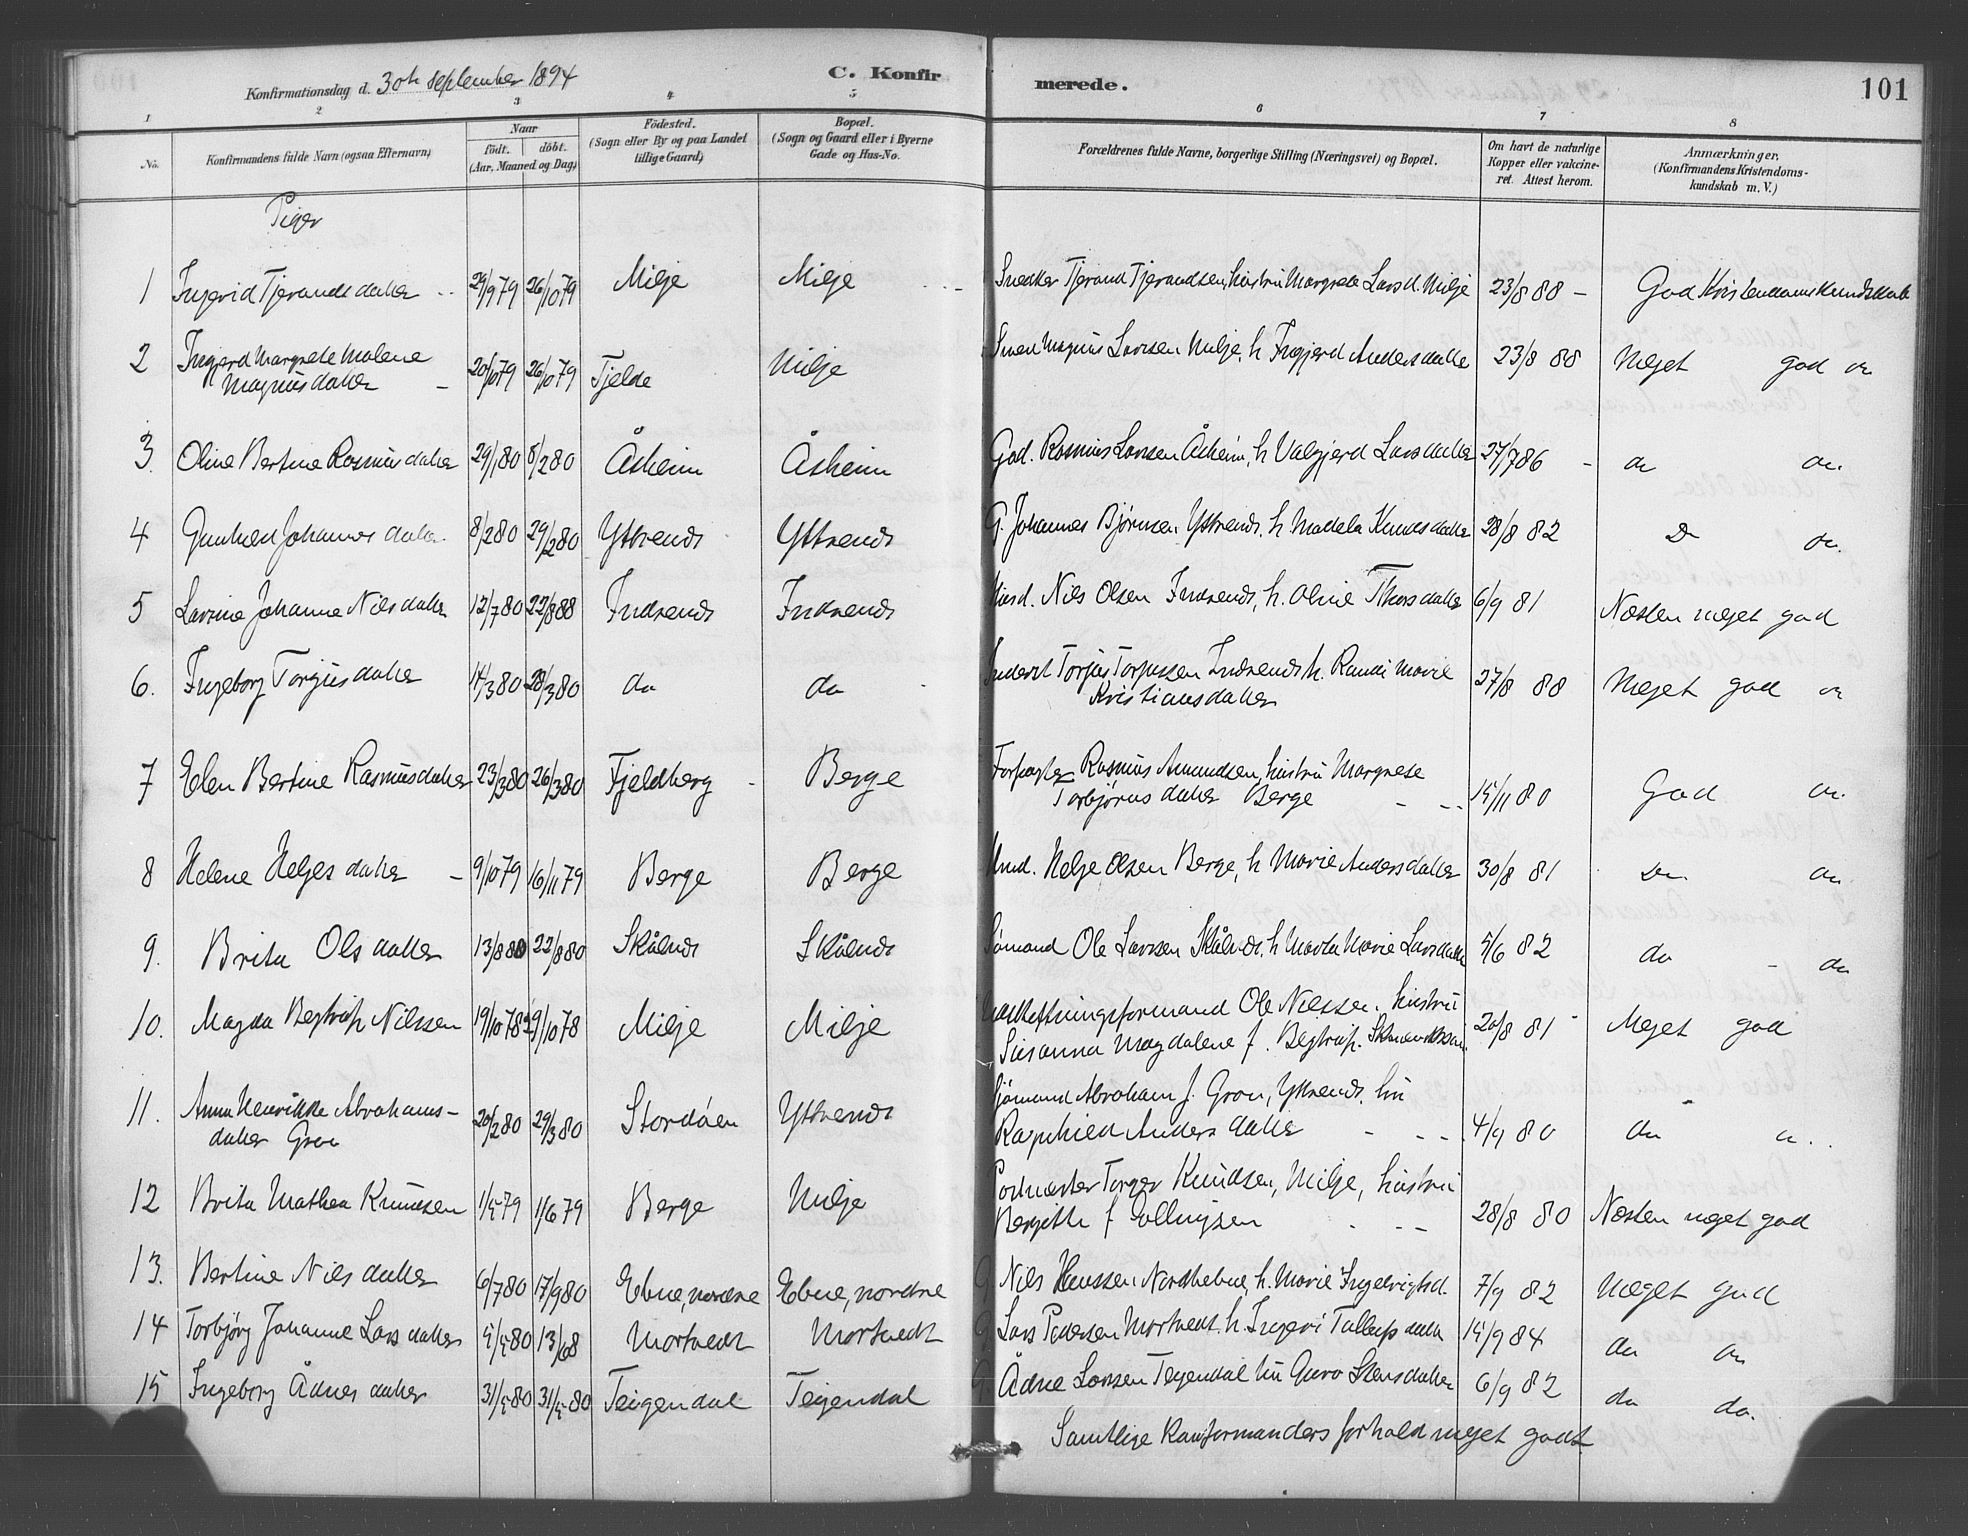 Konfirmationsdag d. 30te september 1894 C. Konfir merede. 101
1 2 3 4 5 6 7 8
No. Konfirmandens fulde Navn (ogsaa Efternavn) Naar født. døbt. (Aar, Maaned og Dag) Fødested. (Sogn eller By og paa Landet tillige Gaard) Bopæl. (Sogn og Gaard eller i Byerne Gade og Hus-No. Forældrenes fulde Navne, borgerlige Stilling (Næringsvei) og Bopæl. Om havt de naturlige Kopper eller vakcineret. Attest herom. Anmærkninger. (Konfirmandens Kristendomskundskab m. V.)
Piger
1 Ingerid Tjerandsdatter 29/9 79 26/10 79 Milje Milje Snedker Tjerand Tjerandsen, hustru Margrete Larsd. Milje 23/8 88 - God Kristendomskundskab
2 Ingjerd Margrete Malene
Magnusdatter - 20/10 79 26/10 79 Tjelde Milje Smed Magnus Larsen Milje, h Ingjerd Andersdatter 23/8 88 Meget god
3. Oline Bertine Rasmusdatter 29/1 80 8/2 80 Åsheim Åsheim Gad. Rasmus Larsen Åsheim, h Valgjerd Larsdatter 27/7 86 - do do.
4 Gunhild Johannesdatter 8/2 80 29/2 80 Yttrends Yttrends G. Johannes Bjørnsen Yttrends, h Madela Knudsdatter 28/8 82 do do.
5 Lavrine Johanne Nilsdatter 12/7 80 22/8 88 Indrends Indrends Husd. Nils Olsen Indrends, h. Oline Thorsdatter 6/9 81 Næsten meget god
6. Ingeborg Torgusdatter 14/3 80 28/3 80 do do Torjus Torjussen Indrends h. Randi Marie
Kristiansdatter 27/8 88 Meget god do
7 Elen Bertine Rasmusdatter 23/3 80 26/3 80 Fjeldberg - Berge Forpagter Rasmus Amundsen, hustru Margrete
Torbjørnsdatter Berge - - 15/11 80 God do.
8 Helene Helgesdatter - 9/10 79 16/11 79 Berge Berge Helge Olsen Berge, h Marie Andersdatter 30/8 81 do do
9. Brita Olsdatter 13/8 80 22/8 80 Skålnds Skålnds Sømand Ole Larsen Skålnds, h Marta Marie Larsdatter 5/6 82 do - do
10. Magda Begtrup Nilssen 19/10 78 29/10 78 Milje Milje Ole Nilssen. hustru
Susanna Magdalene f. Begtrup. 20/8 81 - Meget god
11. Anna Henrikke Abrahams-
datter Gron 20/2 80 29/3 80 Stordøen Yttrends Sjømand Abraham J. Gron, Yttrends, hu
Ragnhild Andersdatter - - - 4/9 80 do
12 Brita Mathea Knudsen 1/5 79 1/6 79 Berge Milje Postmester Torger Knudsen, Milje, hustru
Bergitte f Ellingsen - - - 28/8 80 Næsten meget god
13. Bertine Nilsdatter 6/7 80 17/9 80 Ebne, nordre Ebne, nordre G Nils Hanssen Nordhebne, h. Marie Ingebrigtsd. 7/9 82 Meget god
14 Torbjørg Johanne Larsdatter 5/5 80 13/6 8 Mortvedt Mortvedt G Lars Pedersen Mortvedt. h. Ingeri Tollefsdatter 15/9 84 do do
15 Ingeborg Ådnesdatter 31/5 80 31/5 80 Teigendal Teigendal G Ådne Larsen Teigendal hu Guro Stensdatter 6/9 82 do do.
Samtlige Konfirmanders forhold meget godt